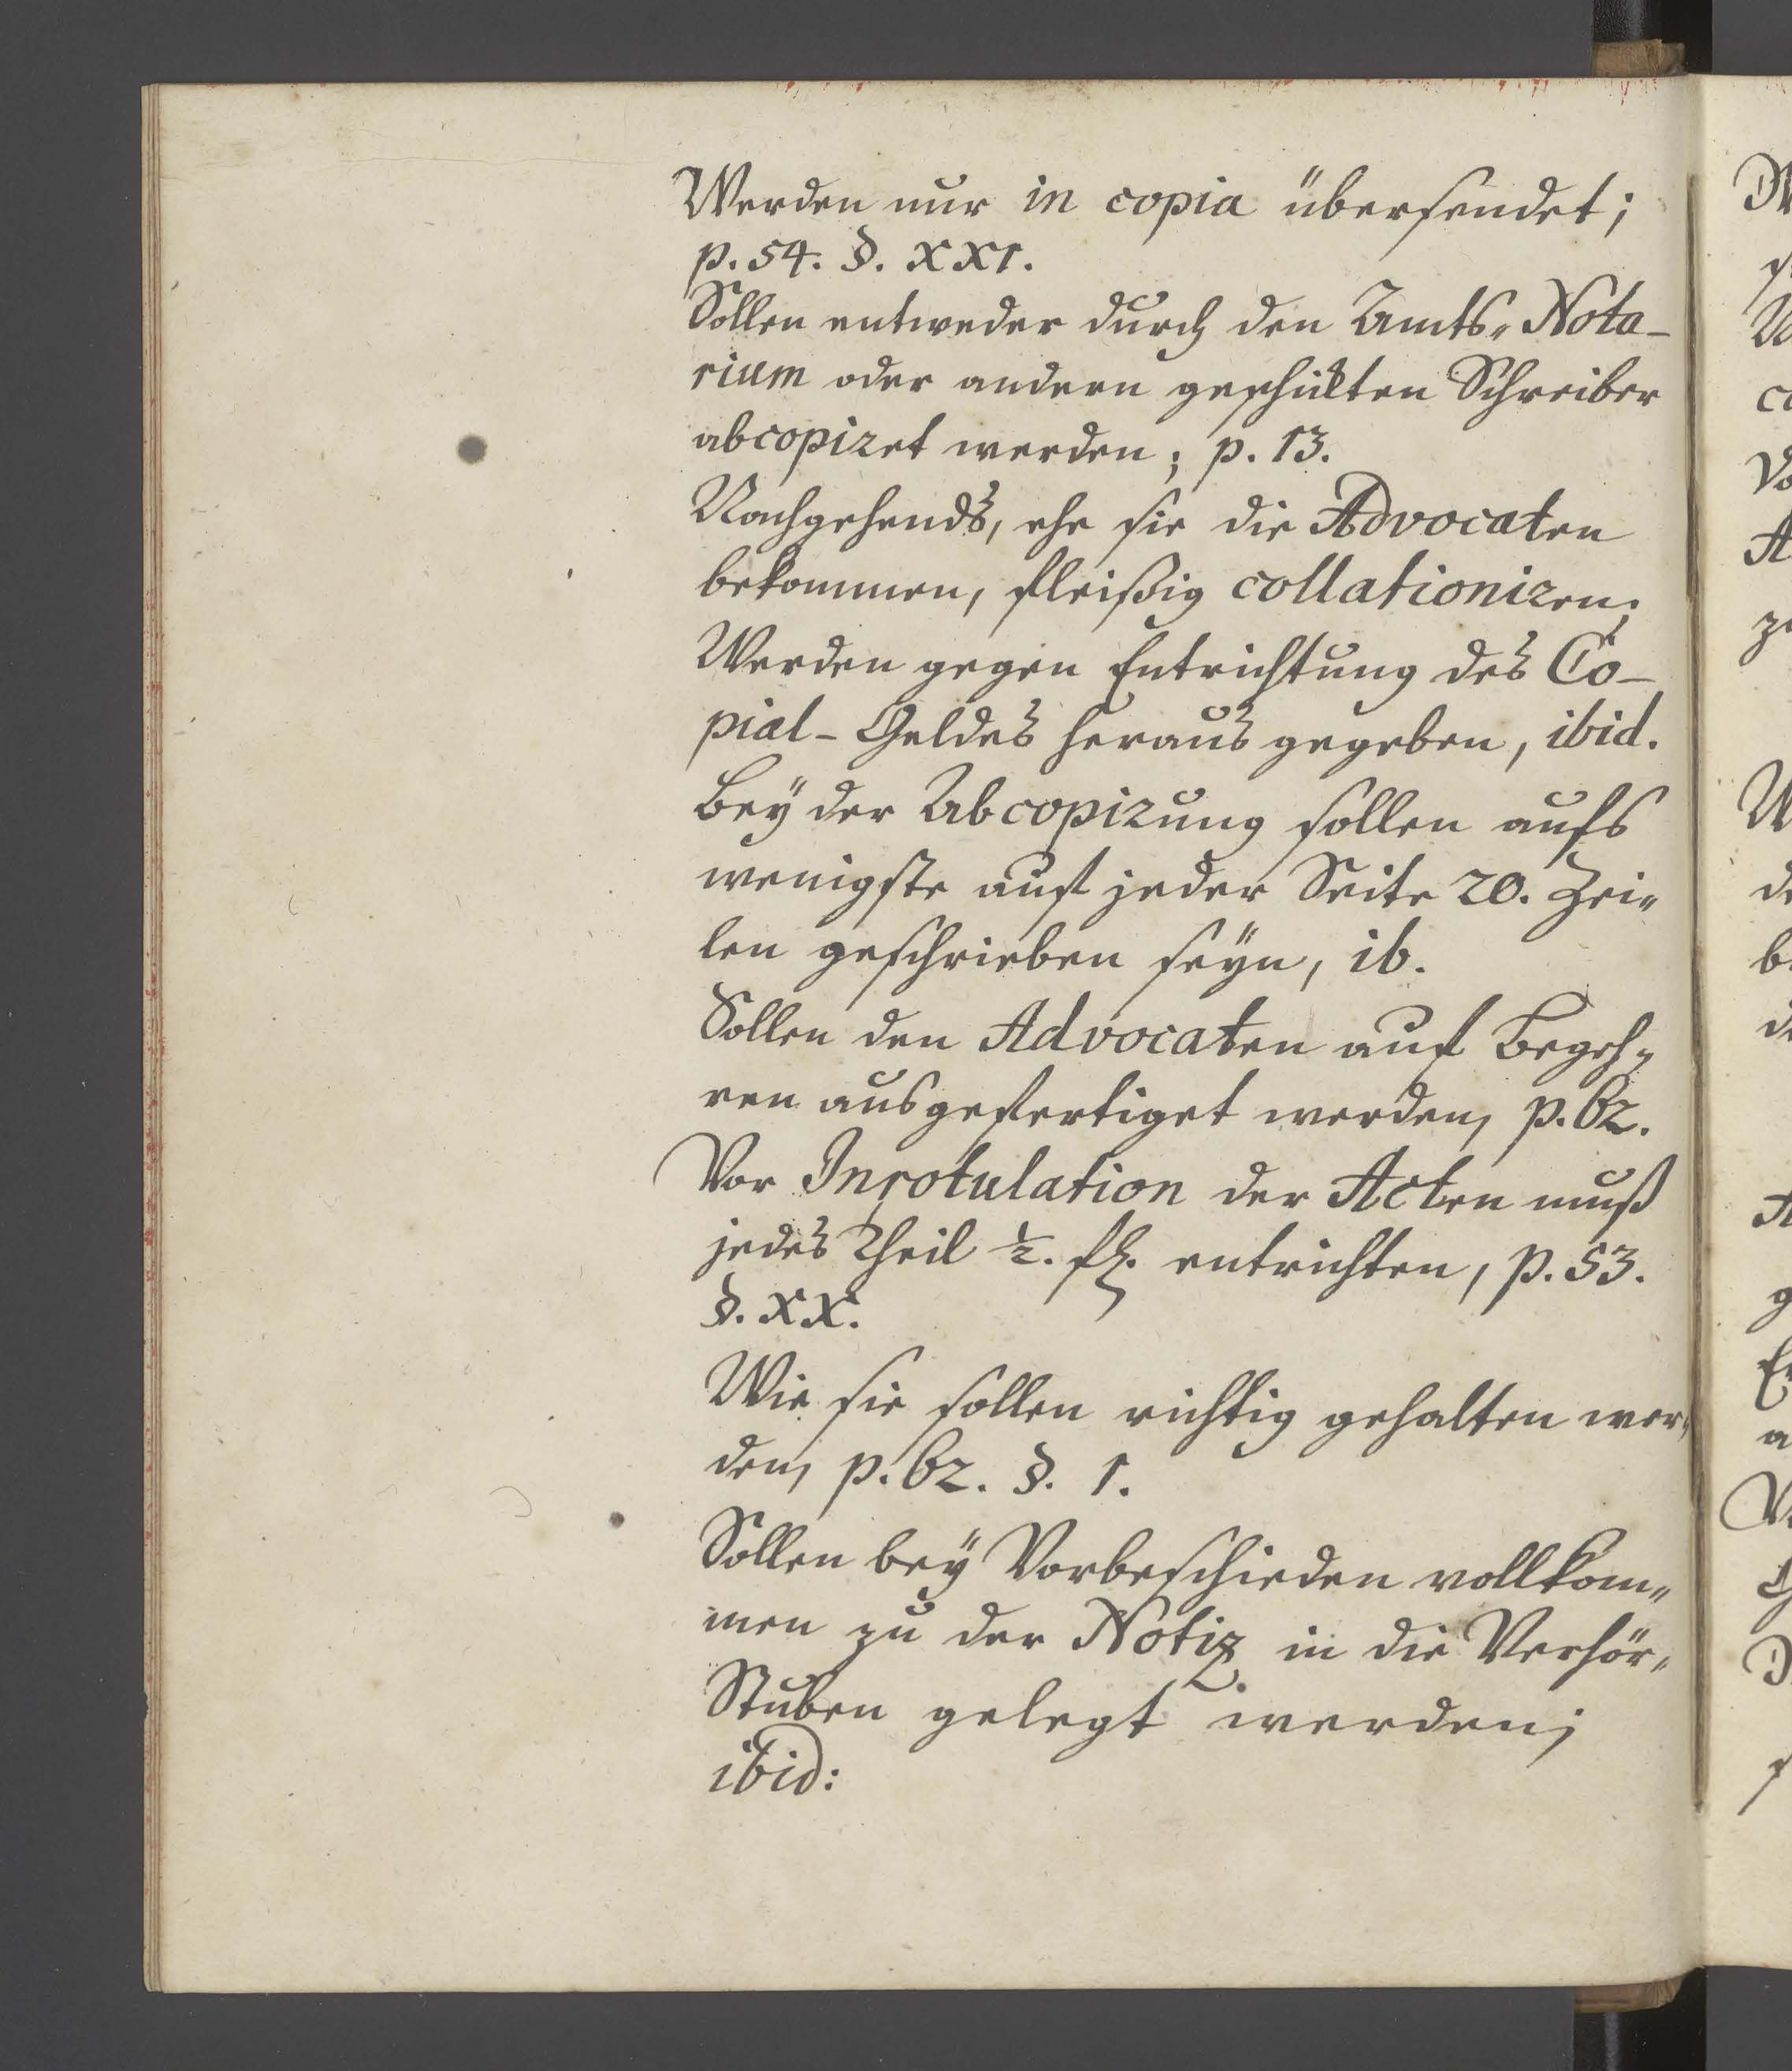 Werden nur in copia übersendet;
p. 54. §. XXI.
Sollen entweder durch den Amts- Nota-
rium oder andern geschickten Schreiber
abcopiret werden; p. 13.
Nachgehends, ehe sie die Advocaten
bekommen, fleißig collationiren;
Werden gegen Entrichtung des Co-
pial-Geldes heraus gegeben, ibid.
Bey der Abcopirung sollen aufs
wenigste auf jeder Seite 20. Zei-
len geschrieben seyn, ib.
Sollen den Advocaten auf Begeh-
ren ausgefertiget werden, p. 62.
Vor Inrotulation der Acten muß
jedes Theil ½. fl. entrichten, p. 53.
§. XX.
Wie sie sollen richtig gehalten wer-
den, p. 62. §. 1.
Sollen bey Vorbeschieden vollkom-
men zu der Notiz in die Verhör-
Stuben gelegt werden;
ibid: